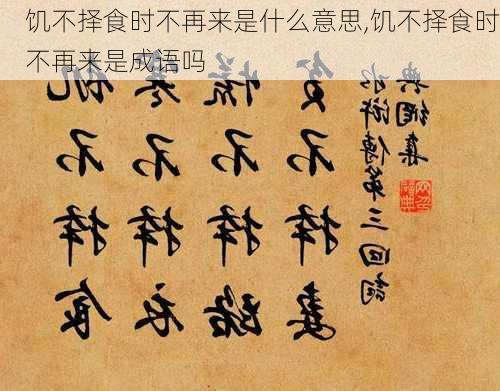 饥不择食时不再来是什么意思,饥不择食时
不再来是成语吗
飢不择食
寒不择衣
慌不择路
貧不择妻
水滸傳第三回詞
典網集